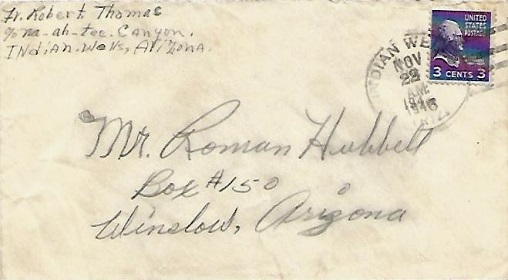 Fr. Robert Thomas
c/o Na-ah-tee Canyon.
Indian-Wells, Arizona.
UNITED
STATES
POSTAGE
3 CENTS 3
INDIAN WE
NOV
22
AM
1946
ARIZ.
Mr. Roman Hubbell
Box #150
Winslow, Arizona